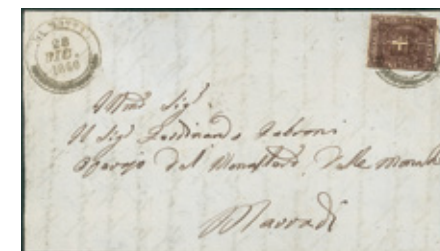 28
DIC.
1860
Ill.mo Sig.
Il Sig. Ferdinando Fabroni
Operajo del Monastero delle
Marradi